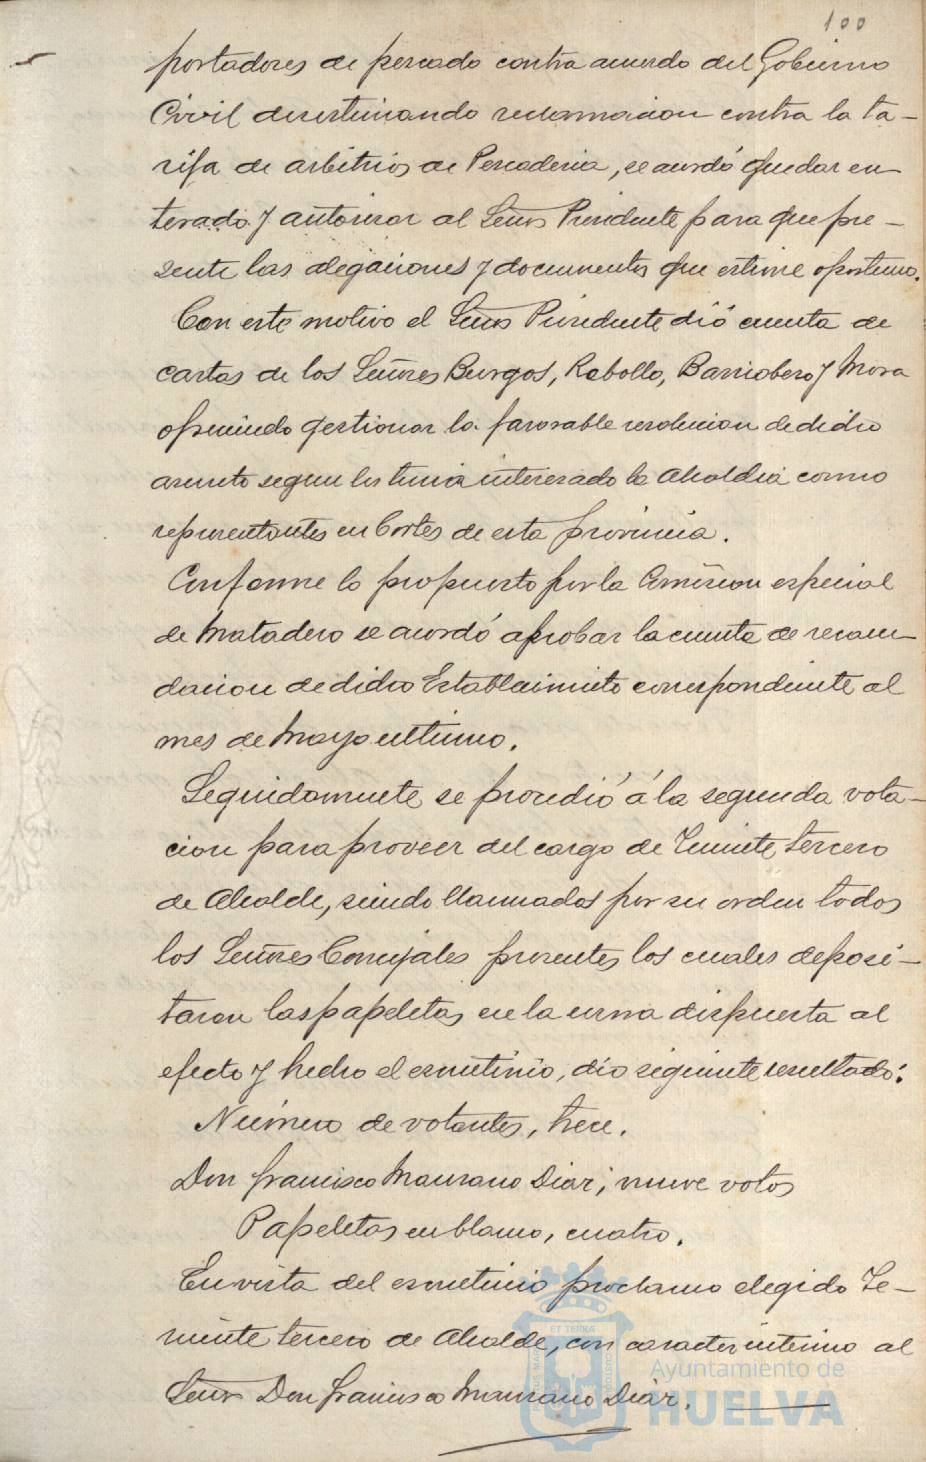 100
portadores de pescado contra acuerdo del Gobierno
Civil desestimando reclamacion contra la ta-
rifa de arbitrios de Pescaderia, se acordó quedar en-
terado y autorizar al Señor Presidente para que pre-
sente las alegaciones y documentos que estime oportuno.
Con este motivo el Señor Presidente dió cuenta de
cartas de los Señores Burgos, Rebollo, Barriobero y Mora
ofreciendo gestionar la favorable resolucion de dicho
asunto segun les tenia interesado la Alcaldia como
representantes en Cortes de esta provincia.
Conforme lo propuesto por la Comision especial
de Matadero se acordó aprobar la cuenta de recau-
dacion de dicho Establecimiento correspondiente al
mes de Mayo ultimo.
Seguidamente se procedió á la segunda vota-
cion para proveer del cargo de Teniente tercero
de Alcalde, siendo llamados por su orden todos
los Señores Concejales presentes los cuales deposi-
taron las papeletas en la urna dispuesta al
efecto y hecho el escrutinio, dió siguiente resultado:
Número de votantes, trece.
Don Francisco Manzano Diaz, nueve votos
Papeletas en blanco, cuatro.
En vista del escrutinio proclamo elegido Te-
niente tercero de Alcalde, con caracter interino al
Señor Don Francisco Manzano Diaz.
Ayuntamiento de
HUELVA